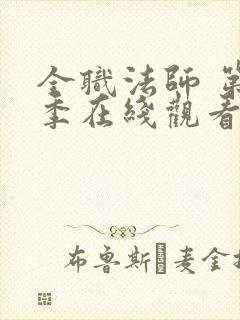 全職法師 第
季在綫觀看
布鲁斯麦金